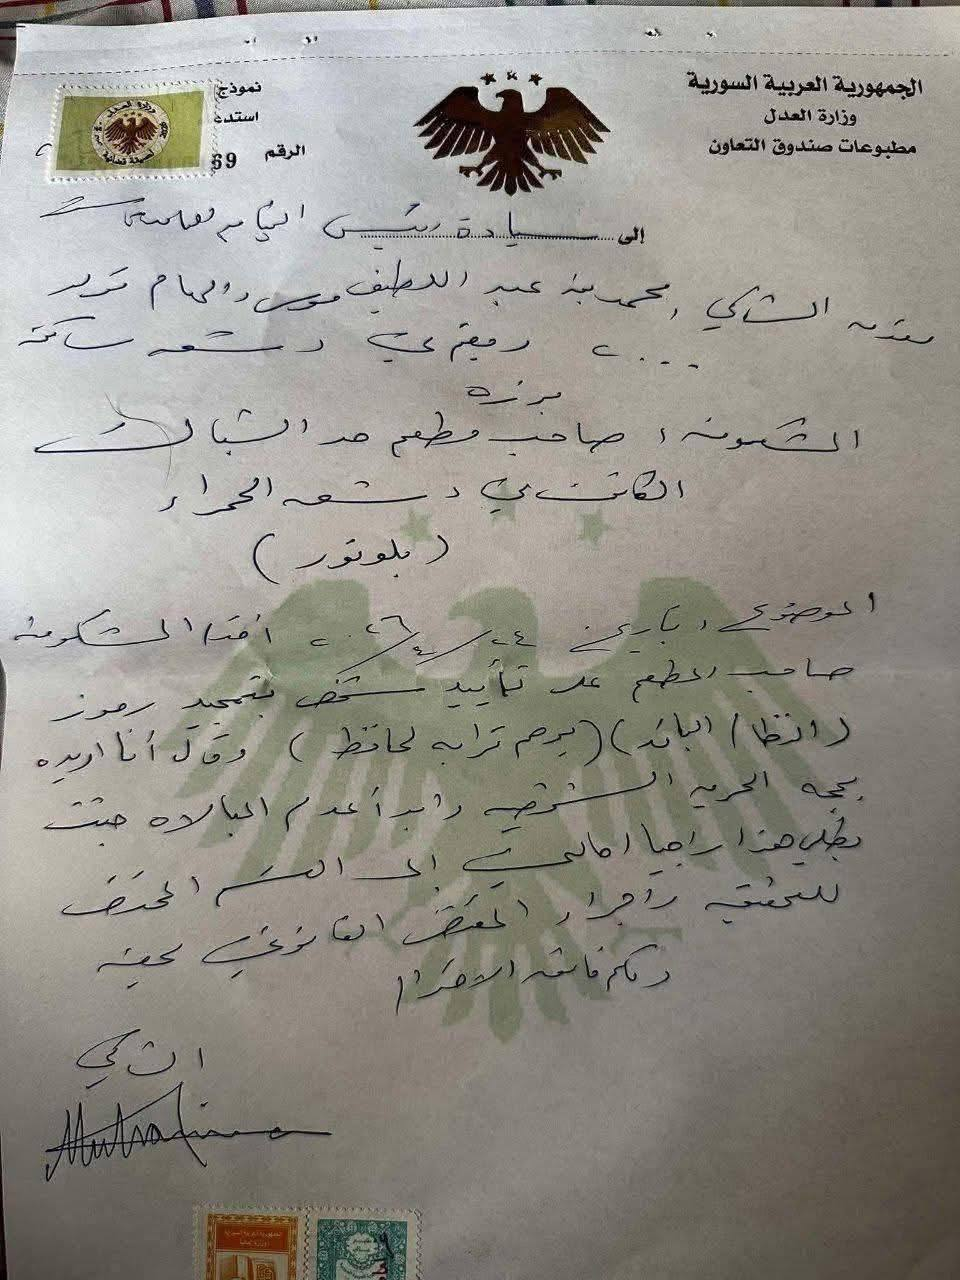 الجمهورية العربية السورية
وزارة العدل
مطبوعات صندوق التعاون
نموذج
استدع
الرقم 69
إلى سيادة رئيس النيابة العامة بدمشق
مقدمه الشاكي: محمد بن عبد اللطيف موسى والهام تولد
ومقيم في دمشق ساكن
برزة
المشكو منه: صاحب مطعم حد الشباك
الكائن في دمشق الحمراء
(بلوتور)
الموضوع: بتاريخ ٢٤/٤/٢٠٢٦ أقدم المشكو منه
صاحب المطعم على تأييد شخص بتمجيد رموز
(النظام البائد) (يرحم ترابه لحافظ) وقال أنا اريده
بحجه الحريه الشخصيه وابدأ عدم المبالاه جئت
بطلبي هذا راجيا احالتي إلى القسم المختص
للتحقيق وأجراء المقتضى القانوني بحقه
ولكم فائق الاحترام
الشاكي